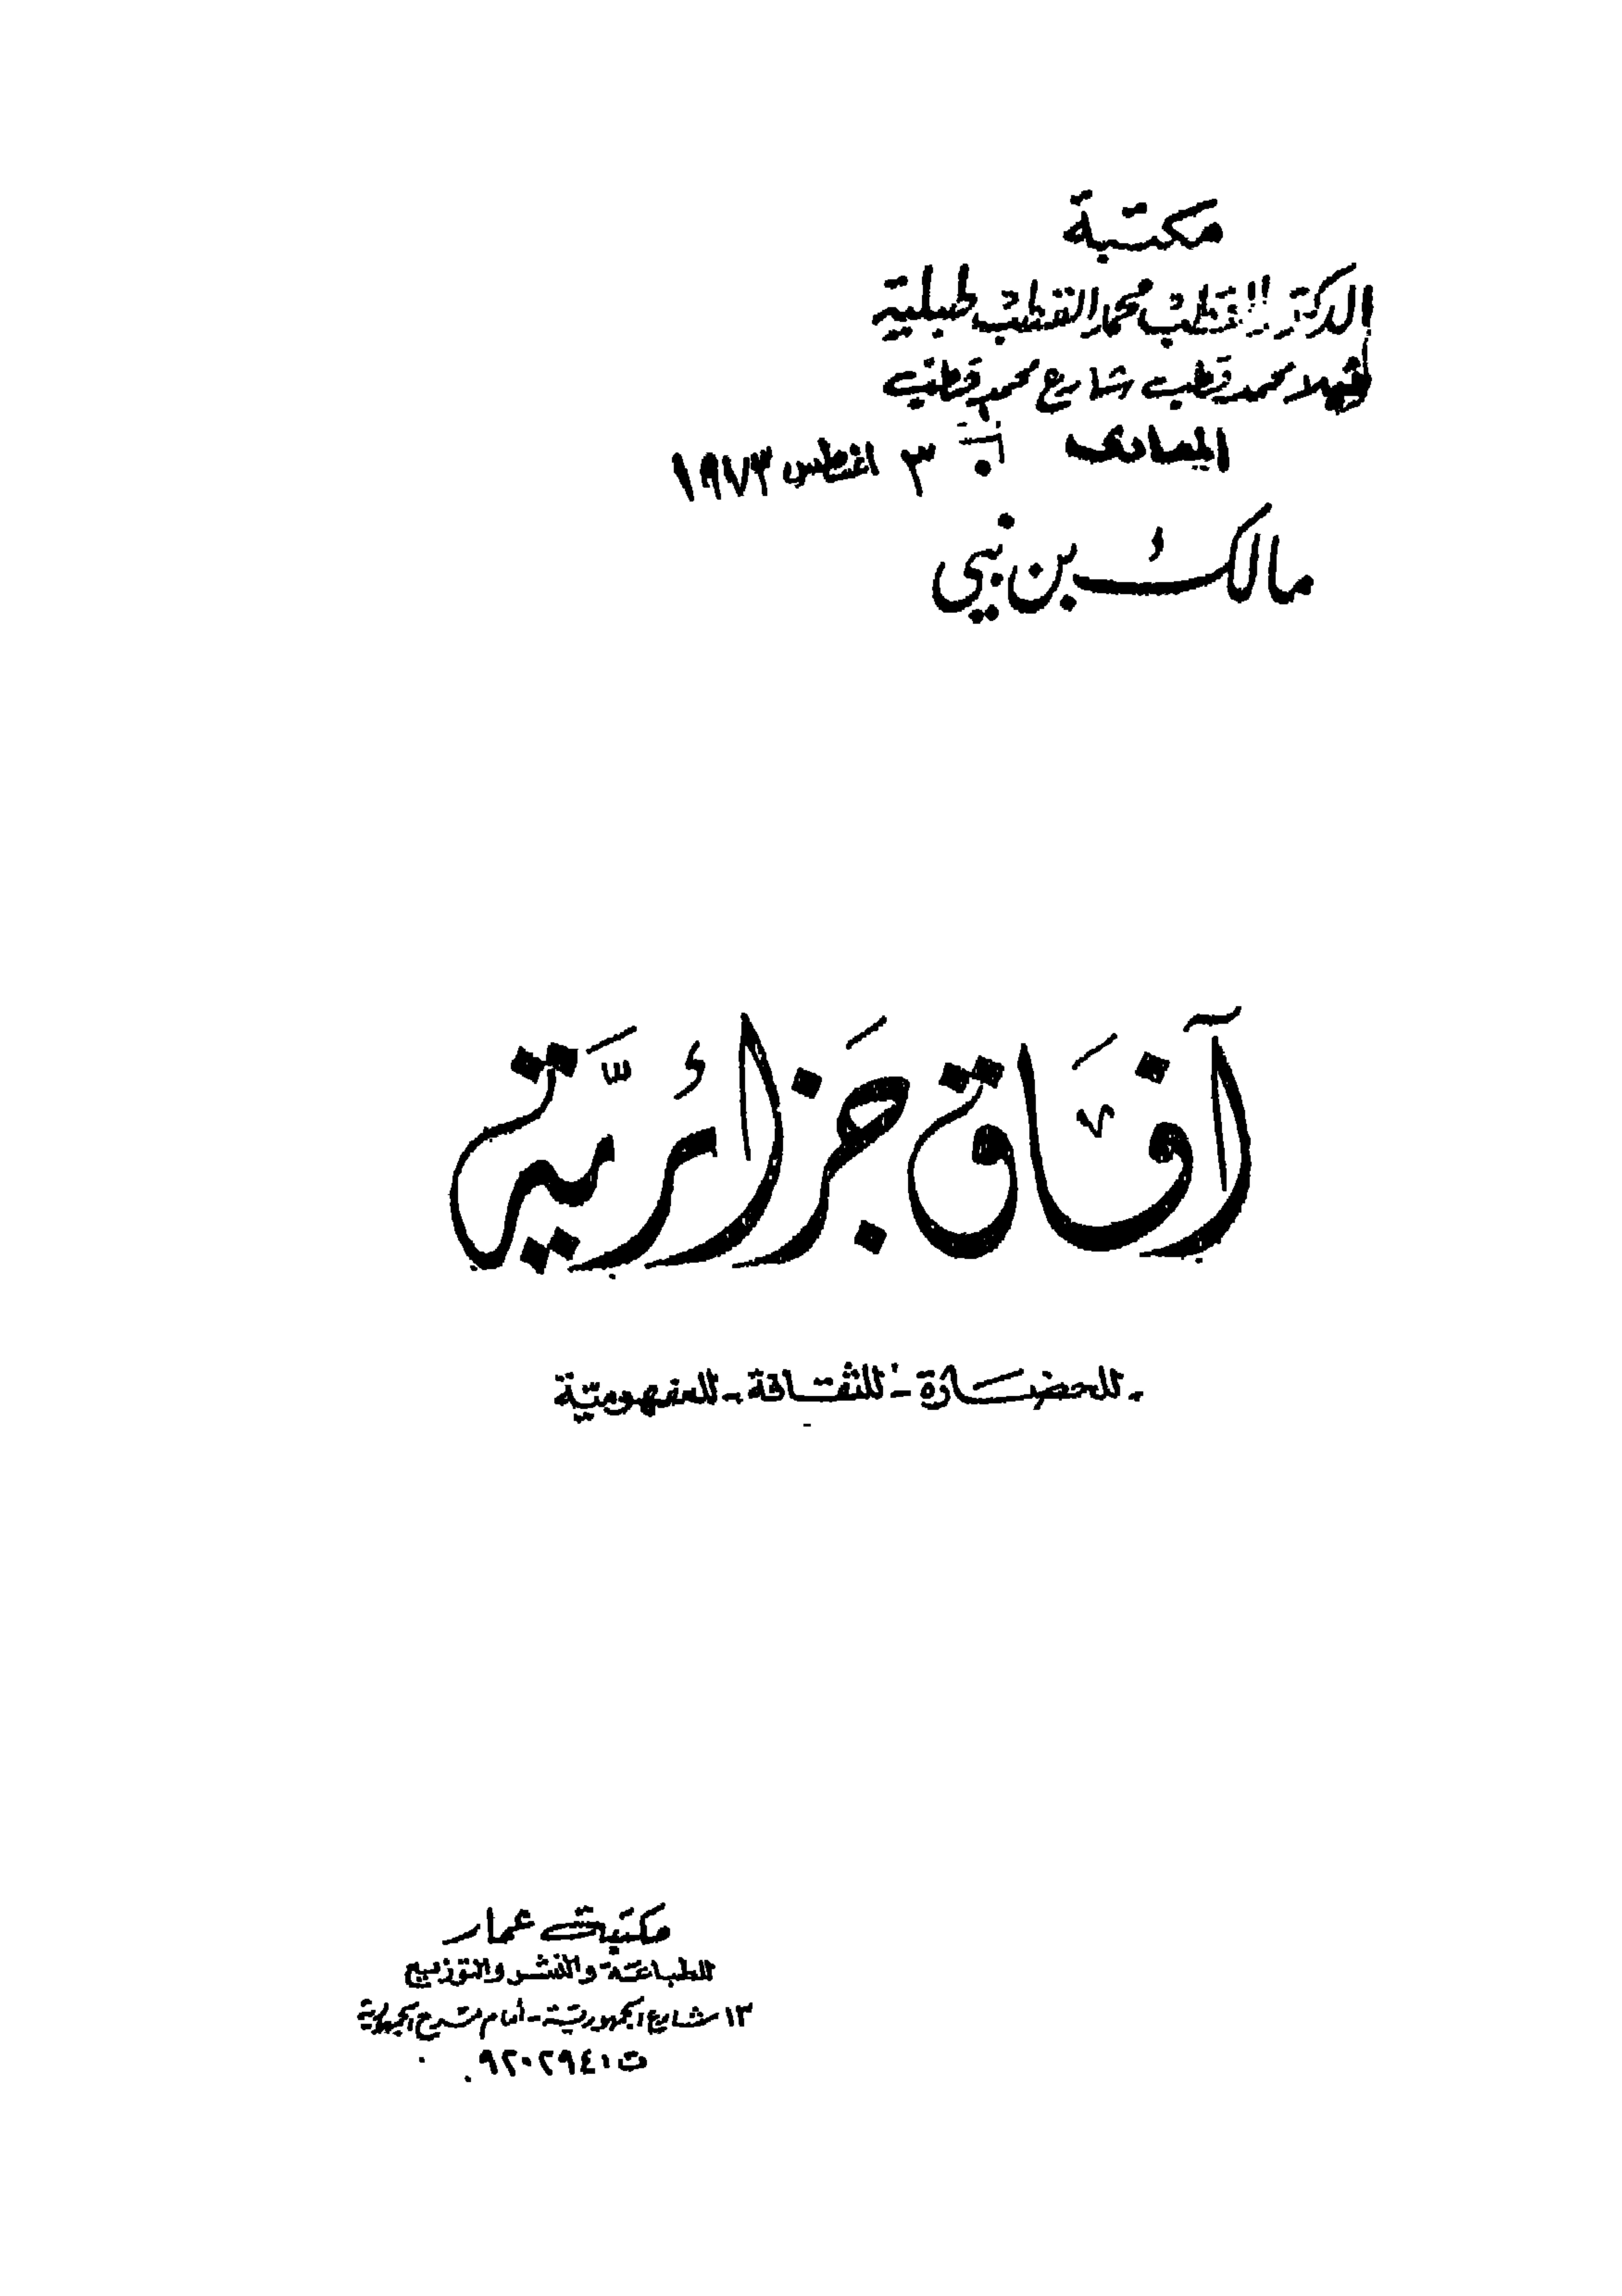 مكتبة
الدكتور القطب محمد القطب طبلية
فيلا محمد قطب شارع محمد قطب
المعادى
٣ اغسطس ١٩٧٣
مالك بن نبي
آفَاق جَزائريَّة
- للحضارة - للثقافة - للمفهوميّة
مكتبة عمار
للطباعة والنشر والتوزيع
١٣ شارع الجمهورية - أمام مسرح الجمهورية
ت ٩٢٠٢٩٤١